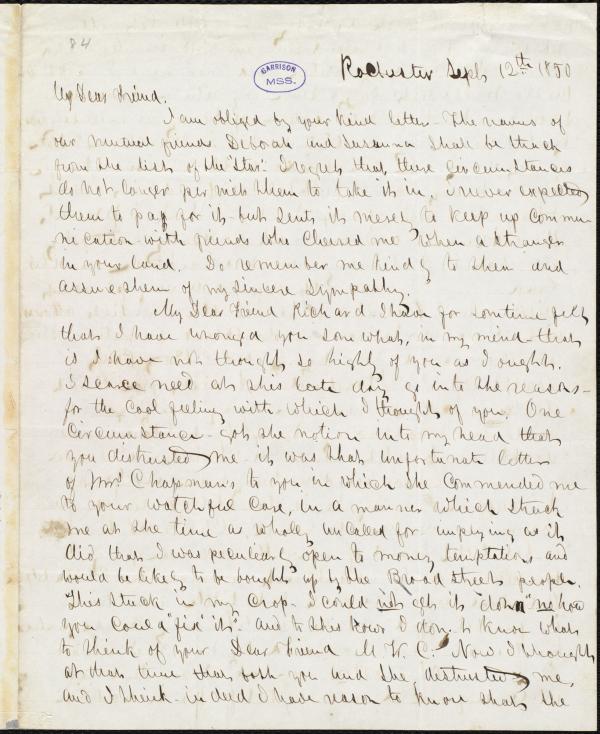 84
GARRISON
MSS.
Rochester Sept. 12th 1850
My Dear Friend.
I am obliged by your kind letter. The names of
our mutual friends Deborah and Susanna shall be struck
from the list of the "Star". I regret that these circumstances
do not longer permit them to take it in, I never expected
them to pay for it but sent it merely to keep up commu-
nication with friends who cheered me when a stranger
in your land. Do remember me kindly to them and
assure them of my sincere sympathy.
My Dear Friend Richard I have for sometime felt
that I have wronged you somewhat, in my mind - that
is I have not thought so highly of you as I ought.
I scarce need at this late day go into the reasons -
for the cool feeling with which I thought of you. One
circumstance - got the notion into my head that
you distrusted me it was that unfortunate letter
of Mrs. Chapman's to you in which she commended me
to your watchful care, in a manner which struck
me at the time as wholly uncalled for implying as it
did that I was peculiarly open to money temptation, and
would be likely to be bought up by the Broad Street people.
This stuck in my crop - I could not get it down "no how
you could fix it" - and to this hour I don't know what
to think of your Dear Friend M. W. C. Now I thought
at that time that both you and she distrusted me,
and I think - indeed I have reason to know that she